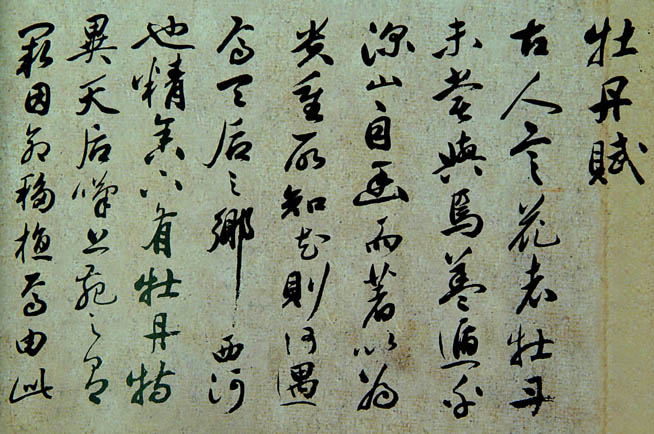 牡丹賦
古人言花者牡丹
未嘗與焉蓋遁乎
深山自幽而著以為
貴重所知花則何遇
焉天后之鄉西河
也精舍下有牡丹特
異天后嘆上苑之有
闕因命移植焉由此